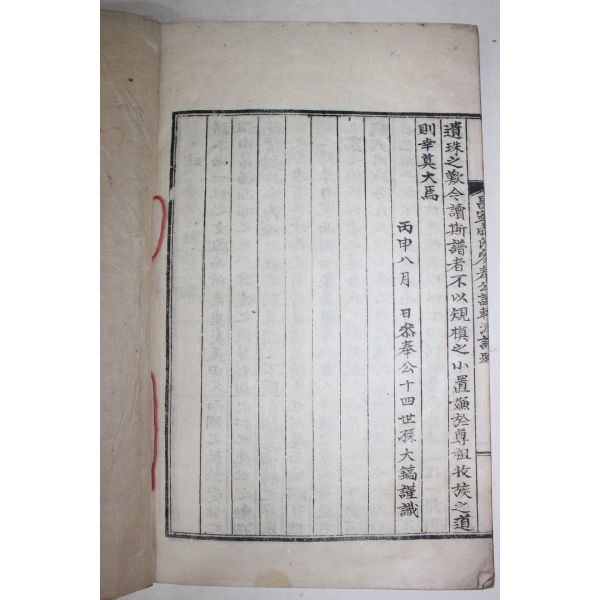 遺珠之歎今讀斯譜者不以規模之小置嫌於尊祖收族之道
則幸莫大焉
丙申八月 日參奉公十四世孫大鎬謹識